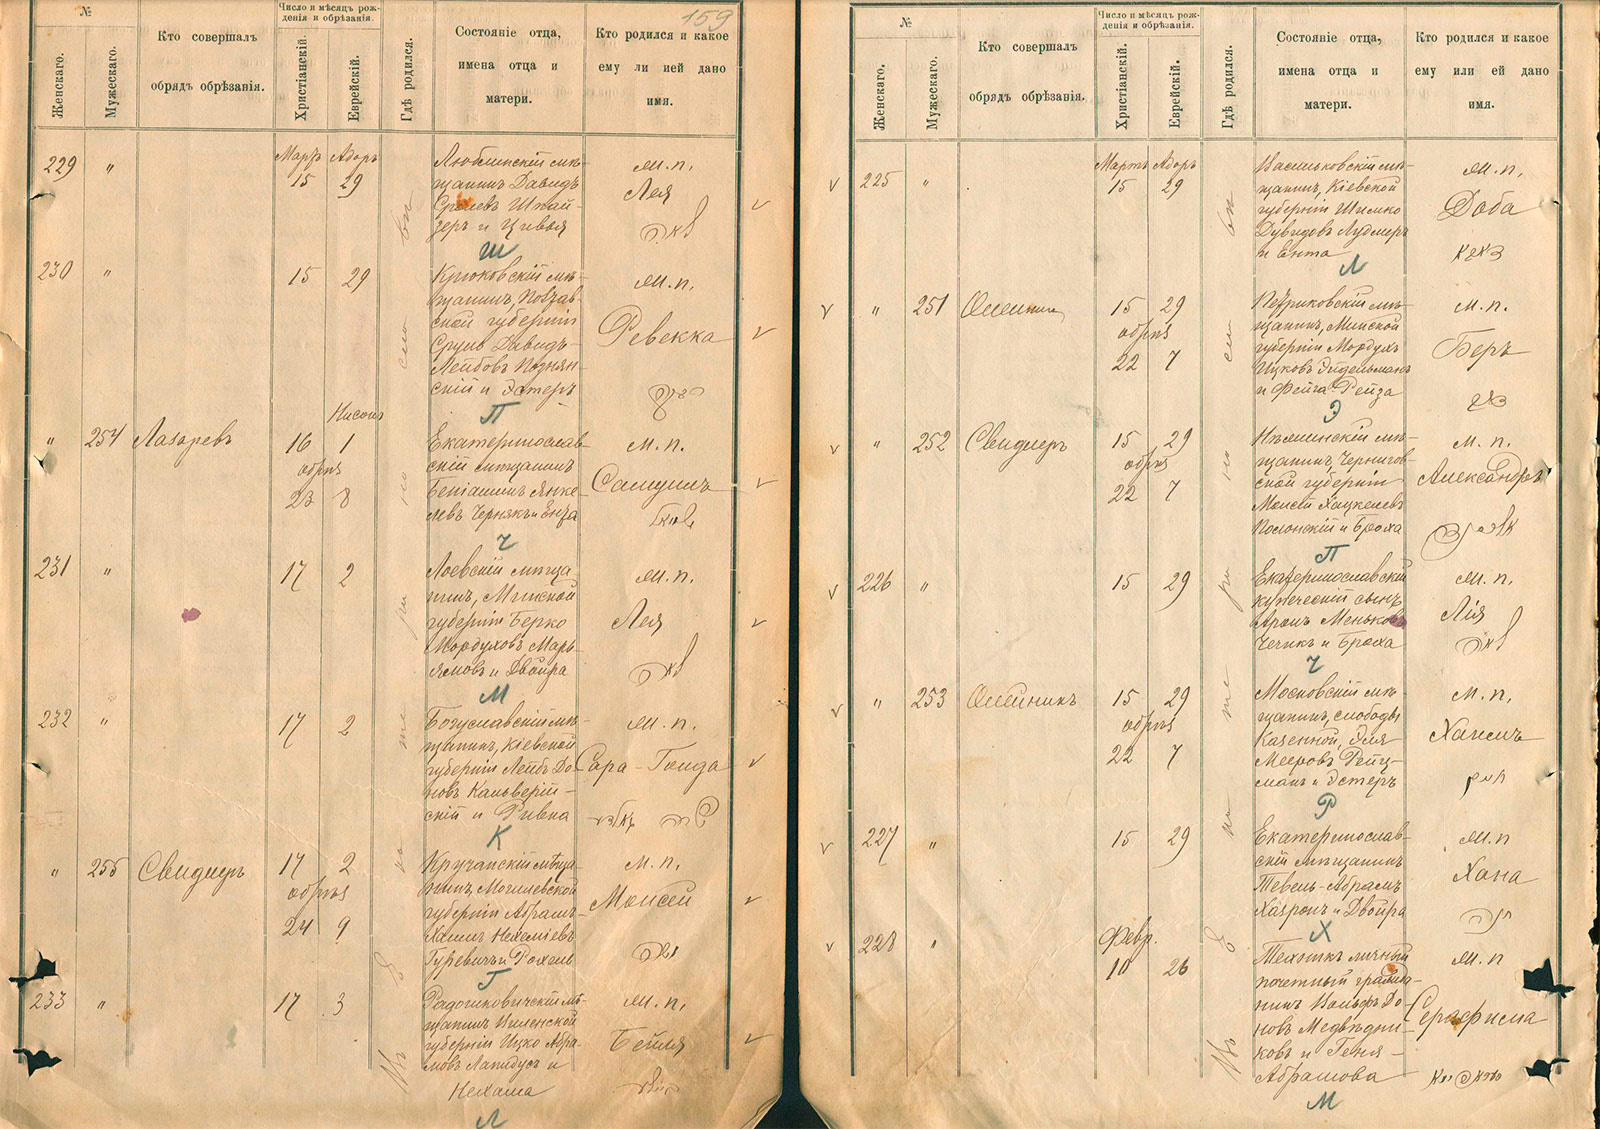 159
№
Женскаго.
Мужескаго.
Кто совершалъ
обрядъ обрѣзанія.
Число и мѣсяцъ рож-
денія и обрѣзанія.
Христіанскій.
Еврейскій.
Гдѣ родился.
Состояніе отца,
имена отца и
матери.
Кто родился и какое
ему или ей дано
имя.
229 "
Мартъ Адоръ
15 29
Люблинскій мѣ-
щанинъ Давидъ
Сролевъ Шпай-
зеръ и Цивья
м. п.
Лея
Ш
230 "
15 29
Крюковскій мѣ-
щанинъ, Полтав-
ской губерніи
Сруль Давидъ-
Лейбовъ Познян-
скій и Эстеръ
м. п.
Ревекка
П
" 254 Лазаревъ
Нисонъ
16 1
обрѣз
23 8
Екатеринослав-
скій мѣщанинъ
Беніаминъ Янке-
левъ Чернякъ и Ента
м. п.
Самуилъ
Ч
231 "
17 2
Лоевскій мѣща-
нинъ, Минской
губерніи Берко
Мордуховъ Марь-
ясмовъ и Двойра
м. п.
Лея
М
232 "
17 2
Богуславскій мѣ-
щанинъ, Кіевской
губерніи Лейбъ До-
новъ Кальверій-
скій и Ривка
м. п.
Сара-Голда
К
" 255 Свидлеръ
17 2
обрѣз
24 9
Кручанскій мѣща-
нинъ, Могилевской
губерніи Абрамъ-
Хаимъ Нехеміевъ
Гуревичъ и Рохель
м. п.
Моисей
Г
233 "
17 3
Радошковичскій мѣ-
щанинъ Виленской
губерніи Ицко Абра-
мовъ Лапидусъ и
Нехама
м. п.
Бейля
Л
№
Женскаго.
Мужескаго.
Кто совершалъ
обрядъ обрѣзанія.
Число и мѣсяцъ рож-
денія и обрѣзанія.
Христіанскій.
Еврейскій.
Гдѣ родился.
Состояніе отца,
имена отца и
матери.
Кто родился и какое
ему или ей дано
имя.
225 "
Мартъ Адоръ
15 29
Васильковскій мѣ-
щанинъ, Кіевской
губерніи Шимко
Дувидовъ Лудмеръ
и Ента
м. п.
Доба
Л
" 251 Олейникъ
15 29
обрѣз
22 7
Петриковскій мѣ-
щанинъ, Минской
губерніи Мордухъ
Ицковъ Эйдельманъ
и Фейга-Рейза
м. п.
Беръ
Э
" 252 Свидлеръ
15 29
обрѣз
22 7
щанинъ, Чернигов-
ской губерніи
Моисей Хацкелевъ
Полонскій и Броха
м. п.
Александръ
П
226 "
15 29
Екатеринославскій
купеческій сынъ
Аронъ Меньковъ
Чечикъ и Броха
м. п.
Лія
Ч
" 253 Олейникъ
15 29
обрѣз
22 7
Московскій мѣ-
щанинъ, слободы
Казенной, Эля
Мееровъ Рейц-
манъ и Эстеръ
м. п.
Хаимъ
Р
227 "
15 29
Екатеринослав-
скій мѣщанинъ
Тевель-Абрамъ
Хазронъ и Двойра
м. п
Хана
Х
228 "
Февр.
10 26
Техникъ личный
почетный гражда-
нинъ Вольфъ До-
новъ Медвѣдни-
ковъ и Геня-
Абрамова
м. п
М